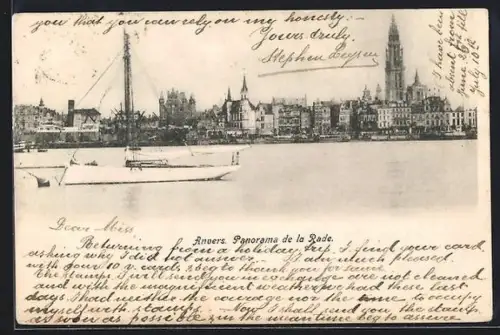 Anvers. Panorama de la Rade.
Dear Miss,
Returning from a holiday trip, I find your card
asking why I did not answer. I am much pleased
with your 10 v. cards & beg to thank you for same.
The stamps I will send you in exchange are not cleaned
and with the magnificent weather we had these last
days, I had neither the courage nor the time to occupy
myself with stamps. Now I shall send you the stamps
as soon as possible & in the meantime beg to assure
you that you can rely on my honesty.
Yours truly,
Stephen
I have been
absent from
june 26th till
july 10th